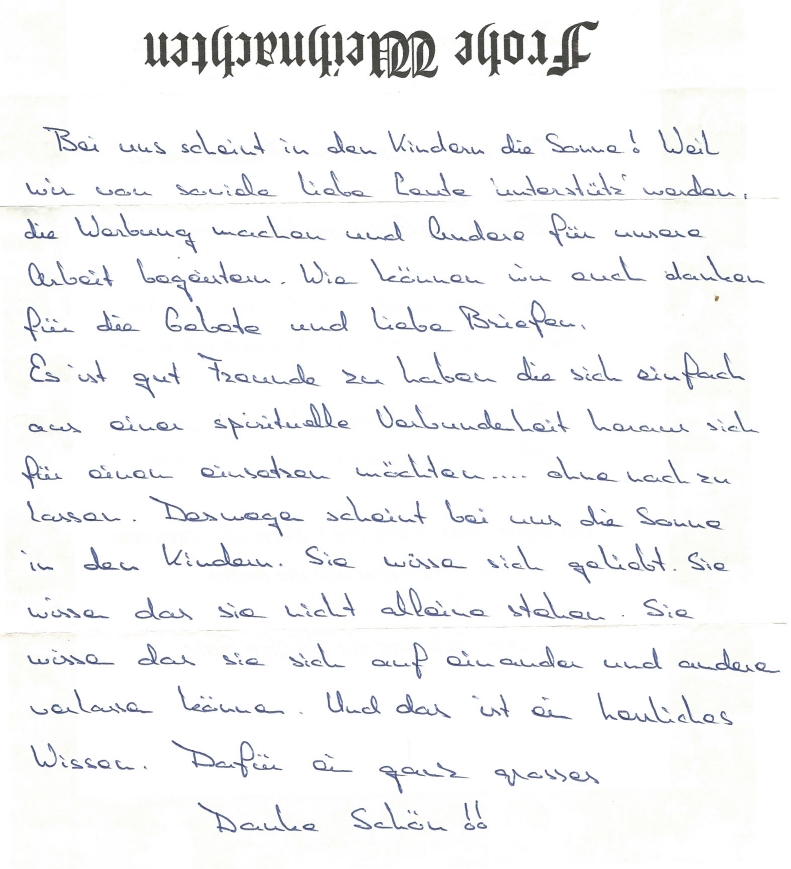 Frohe Weihnachten
Bei uns scheint in den Kindern die Sonne! Weil
wir von soviele liebe Leute 'unterstütz' werden,
die Werbung machen und Andere für unsere
Arbeit begeistern. Wie können wir euch danken
für die Gebete und liebe Briefen.
Es ist gut Freunde zu haben die sich einfach
aus einer spirituelle Verbundenheit heraus sich
für einen einsetzen möchten.... ohne nach zu
lassen. Deswegen scheint bei uns die Sonne
in den Kindern. Sie wisse sich geliebt. Sie
wissen das sie nicht alleine stehen. Sie
wisse das sie sich auf einander und andere
verlassen können. Und das ist ein herrliches
Wissen. Dafür ein ganz grosses
Danke Schön!!